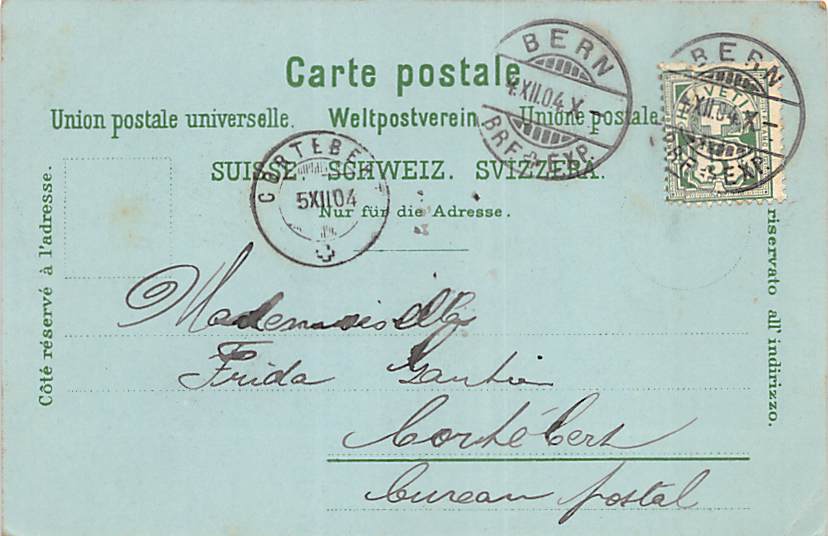 Carte postale
Union postale universelle. Weltpostverein. Unione postale
SUISSE. SCHWEIZ. SVIZZERA.
Nur für die Adresse.
Côté réservé à l'adresse.
riservato all' indirizzo.
BERN
4.XII.04.X
BRF. EXP.
BERN
4.XII.04.X
BRF. EXP.
HELVETIA
CORTEBERT
5XII04
Mademoiselle
Frida Gautier
Cortébert
bureau postal